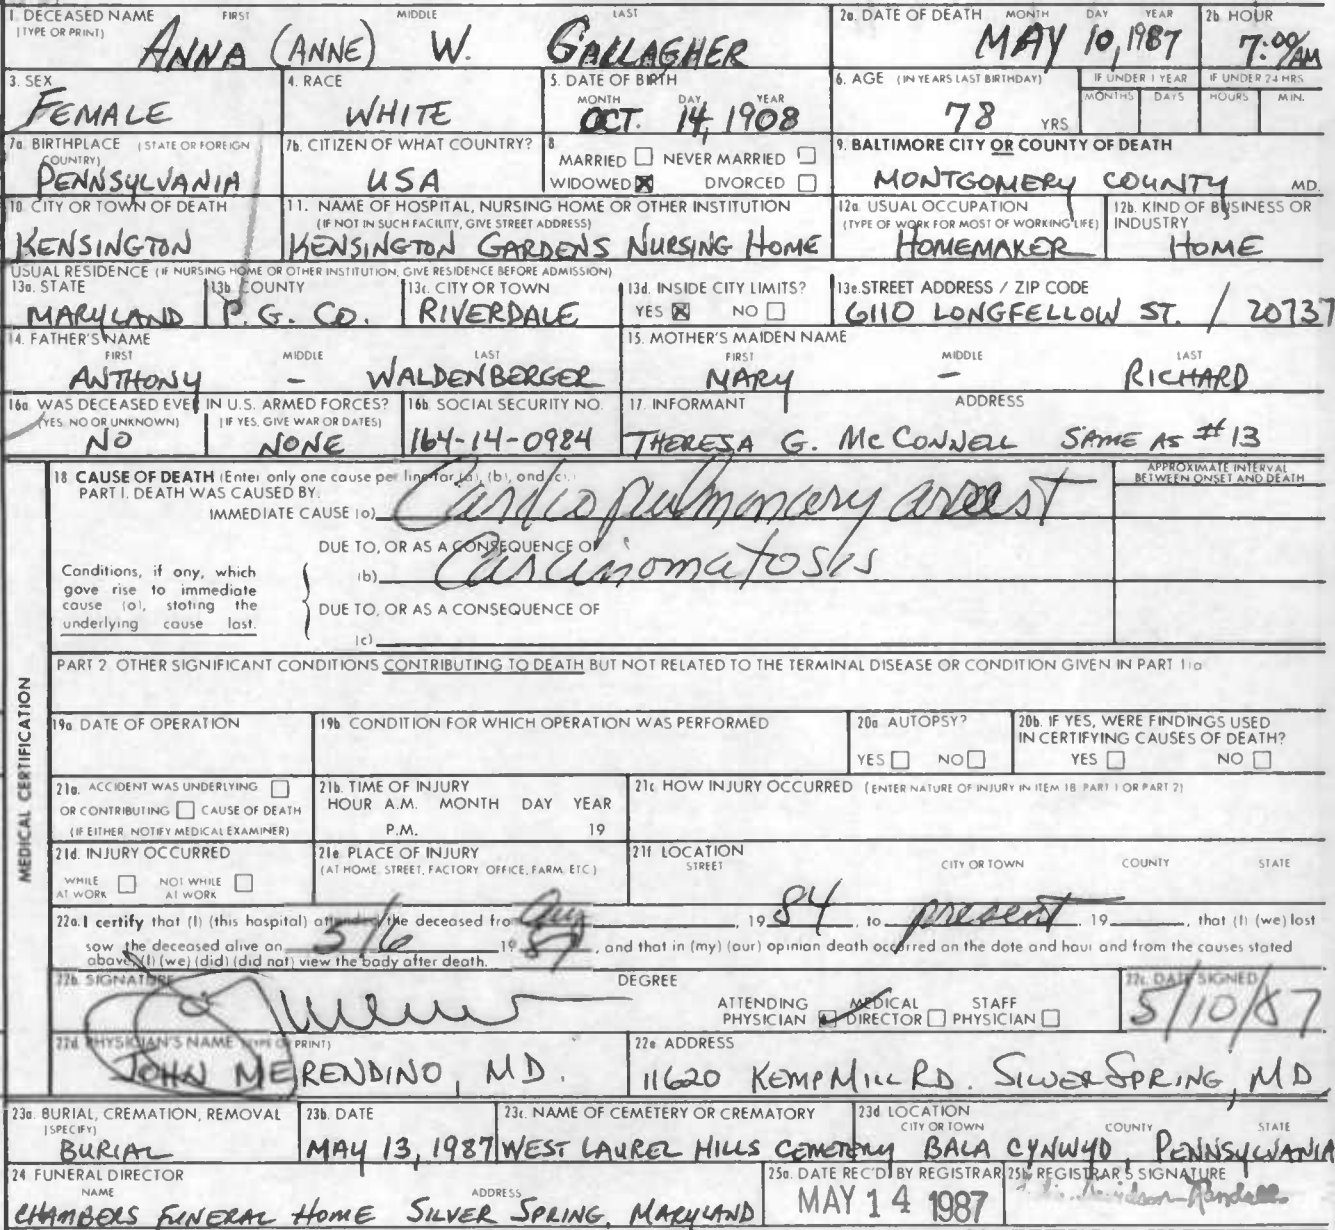 1. DECEASED NAME FIRST MIDDLE LAST
(TYPE OR PRINT)
ANNA (ANNE) W. GALLAGHER
2a. DATE OF DEATH MONTH DAY YEAR
MAY 10, 1987
2b HOUR
7:00/AM
3. SEX
FEMALE
4. RACE
WHITE
5. DATE OF BIRTH
MONTH DAY YEAR
OCT. 14, 1908
6. AGE (IN YEARS LAST BIRTHDAY)
78 YRS
IF UNDER 1 YEAR
MONTHS DAYS
IF UNDER 24 HRS
HOURS MIN.
7a. BIRTHPLACE (STATE OR FOREIGN
COUNTRY)
PENNSYLVANIA
7b. CITIZEN OF WHAT COUNTRY?
USA
8
MARRIED NEVER MARRIED
WIDOWED X DIVORCED
9. BALTIMORE CITY OR COUNTY OF DEATH
MONTGOMERY COUNTY MD.
10. CITY OR TOWN OF DEATH
KENSINGTON
11. NAME OF HOSPITAL, NURSING HOME OR OTHER INSTITUTION
(IF NOT IN SUCH FACILITY, GIVE STREET ADDRESS)
KENSINGTON GARDENS NURSING HOME
12a. USUAL OCCUPATION
(TYPE OF WORK FOR MOST OF WORKING LIFE)
HOMEMAKER
12b. KIND OF BUSINESS OR
INDUSTRY
HOME
USUAL RESIDENCE (IF NURSING HOME OR OTHER INSTITUTION, GIVE RESIDENCE BEFORE ADMISSION)
13a. STATE
MARYLAND
13b. COUNTY
P. G. CO.
13c. CITY OR TOWN
RIVERDALE
13d. INSIDE CITY LIMITS?
YES X NO
13e. STREET ADDRESS / ZIP CODE
6110 LONGFELLOW ST. / 20737
14. FATHER'S NAME
FIRST MIDDLE LAST
ANTHONY - WALDENBERGER
15. MOTHER'S MAIDEN NAME
FIRST MIDDLE LAST
MARY - RICHARD
16a. WAS DECEASED EVER IN U.S. ARMED FORCES?
(YES, NO OR UNKNOWN) (IF YES, GIVE WAR OR DATES)
NO NONE
16b. SOCIAL SECURITY NO.
164-14-0984
17. INFORMANT ADDRESS
THERESA G. MCCONNELL SAME AS #13
18 CAUSE OF DEATH (Enter only one cause per line for (a), (b), and (c).)
PART I. DEATH WAS CAUSED BY:
IMMEDIATE CAUSE (a) Cardiopulmonary arrest
APPROXIMATE INTERVAL
BETWEEN ONSET AND DEATH
DUE TO, OR AS A CONSEQUENCE OF
(b) Carcinomatosis
Conditions, if any, which
gave rise to immediate
cause (a), stating the
underlying cause last.
DUE TO, OR AS A CONSEQUENCE OF
(c)
PART 2 OTHER SIGNIFICANT CONDITIONS CONTRIBUTING TO DEATH BUT NOT RELATED TO THE TERMINAL DISEASE OR CONDITION GIVEN IN PART 1(a)
MEDICAL CERTIFICATION
19a. DATE OF OPERATION
19b CONDITION FOR WHICH OPERATION WAS PERFORMED
20a AUTOPSY?
YES NO
20b. IF YES, WERE FINDINGS USED
IN CERTIFYING CAUSES OF DEATH?
YES NO
21a. ACCIDENT WAS UNDERLYING
OR CONTRIBUTING CAUSE OF DEATH
(IF EITHER, NOTIFY MEDICAL EXAMINER)
21b. TIME OF INJURY
HOUR A.M. MONTH DAY YEAR
P.M. 19
21c HOW INJURY OCCURRED (ENTER NATURE OF INJURY IN ITEM 18 PART 1 OR PART 2)
21d. INJURY OCCURRED
WHILE AT WORK NOT WHILE AT WORK
21e PLACE OF INJURY
(AT HOME, STREET, FACTORY, OFFICE, FARM, ETC)
21f LOCATION
STREET CITY OR TOWN COUNTY STATE
22a. I certify that (I) (this hospital) attended the deceased from Aug 19 84, to present, 19 , that (I) (we) last
saw the deceased alive on 5/6 19 87, and that in (my) (our) opinion death occurred on the date and hour and from the causes stated
above, (I) (we) (did) (did not) view the body after death.
22b. SIGNATURE DEGREE
ATTENDING PHYSICIAN MEDICAL DIRECTOR STAFF PHYSICIAN
22c. DATE SIGNED
5/10/87
22d. PHYSICIAN'S NAME (TYPE OR PRINT)
JOHN MERENDINO, MD.
22e ADDRESS
11620 KEMP MILL RD. SILVER SPRING, MD
23a. BURIAL, CREMATION, REMOVAL
(SPECIFY)
BURIAL
23b. DATE
MAY 13, 1987
23c. NAME OF CEMETERY OR CREMATORY
WEST LAUREL HILLS CEMETERY
23d LOCATION
CITY OR TOWN COUNTY STATE
BALA CYNWYD, PENNSYLVANIA
24 FUNERAL DIRECTOR
NAME ADDRESS
CHAMBERS FUNERAL HOME SILVER SPRING, MARYLAND
25a. DATE REC'D BY REGISTRAR
MAY 14 1987
25b. REGISTRAR'S SIGNATURE
Davidson-Randall